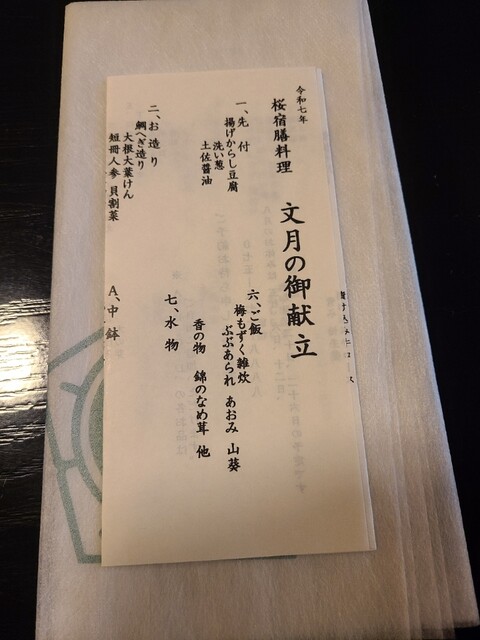 令和七年
桜宿膳料理
文月の御献立
一、先付
揚げからし豆腐
洗い葱
土佐醤油
二、お造り
鯛へぎ造り
大根大葉けん
短冊人参 貝割菜
六、ご飯
梅もずく雑炊
ぶぶあられ あおみ 山葵
香の物 錦のなめ茸 他
七、水物
A、中鉢